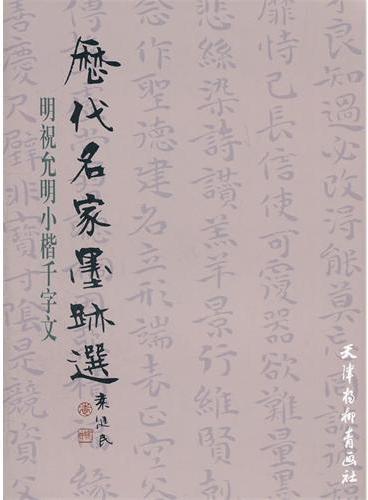 歷代名家墨跡選
明祝允明小楷千字文
天津杨柳青画社
才良知過必改得能莫忘
靡恃己長信使可覆器欲難量墨
悲絲染詩讚羔羊景行維賢
念作聖德建名立形端表正空谷
善慶尺璧非寶寸陰是競資父